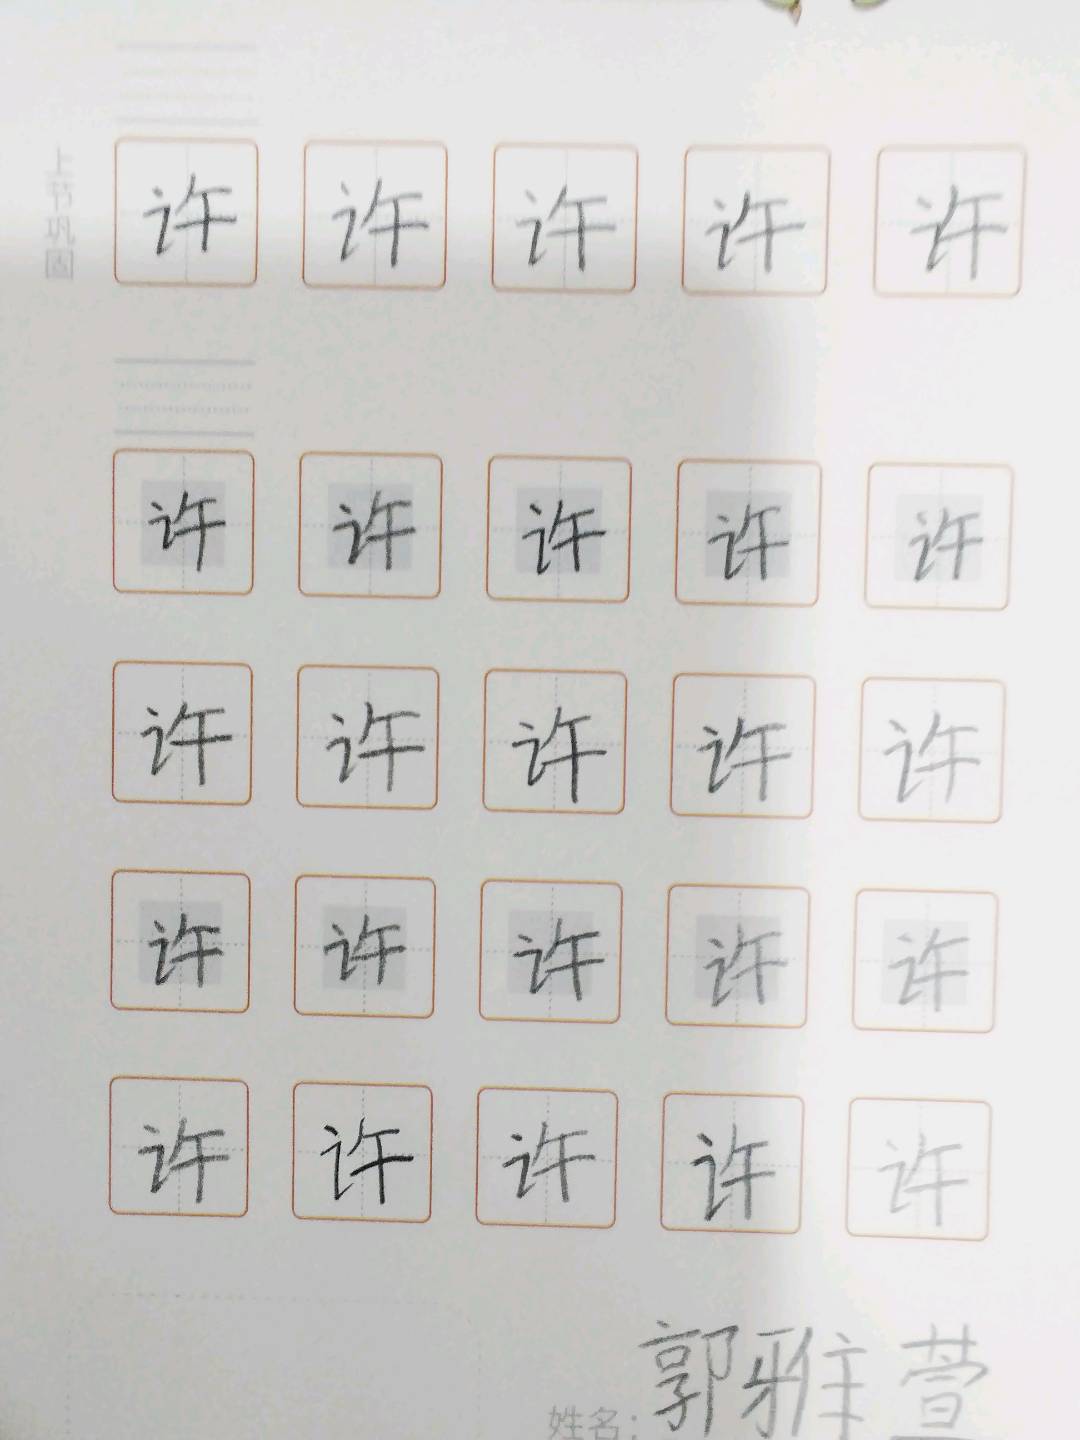 上节巩固
许 许 许 许 许
许 许 许 许 许
许 许 许 许 许
许 许 许 许 许
许 许 许 许 许
姓名：郭雅萱